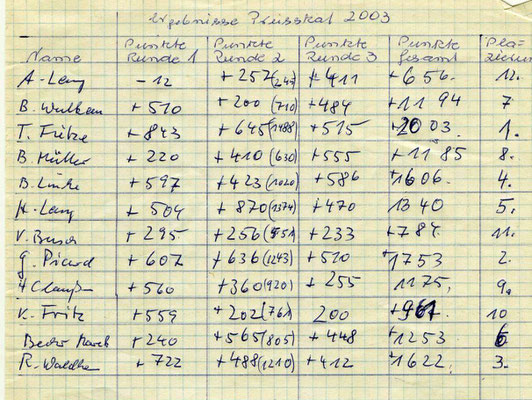 Ergebnisse Preisskat 2003
Name Punkte Runde 1 Punkte Runde 2 Punkte Runde 3 Punkte Gesamt Pla-zierung
A. Lang -12 +257 (245) +411 +656. 12.
B. +510 +200 (710) +484 +1194 7
T. Fritze +843 +645 (1488) +515 +2003. 1.
B. Müller +220 +410 (630) +555 +1185 8.
B. Linke +597 +423 (1020) +586 +1606. 4.
H. Lang +504 +870 (1374) +470 1340 5.
V. Busch +295 +256 (551) +233 +784. 11.
G. Picard +607 +636 (1243) +510 +1753 2.
H Claußen +560 +360 (920) +255 1175. 9.
K. Fritz +559 +202 (761) 200 +961. 10
+240 +565 (805) +448 +1253 6.
R. +722 +488 (1210) +412 +1622. 3.